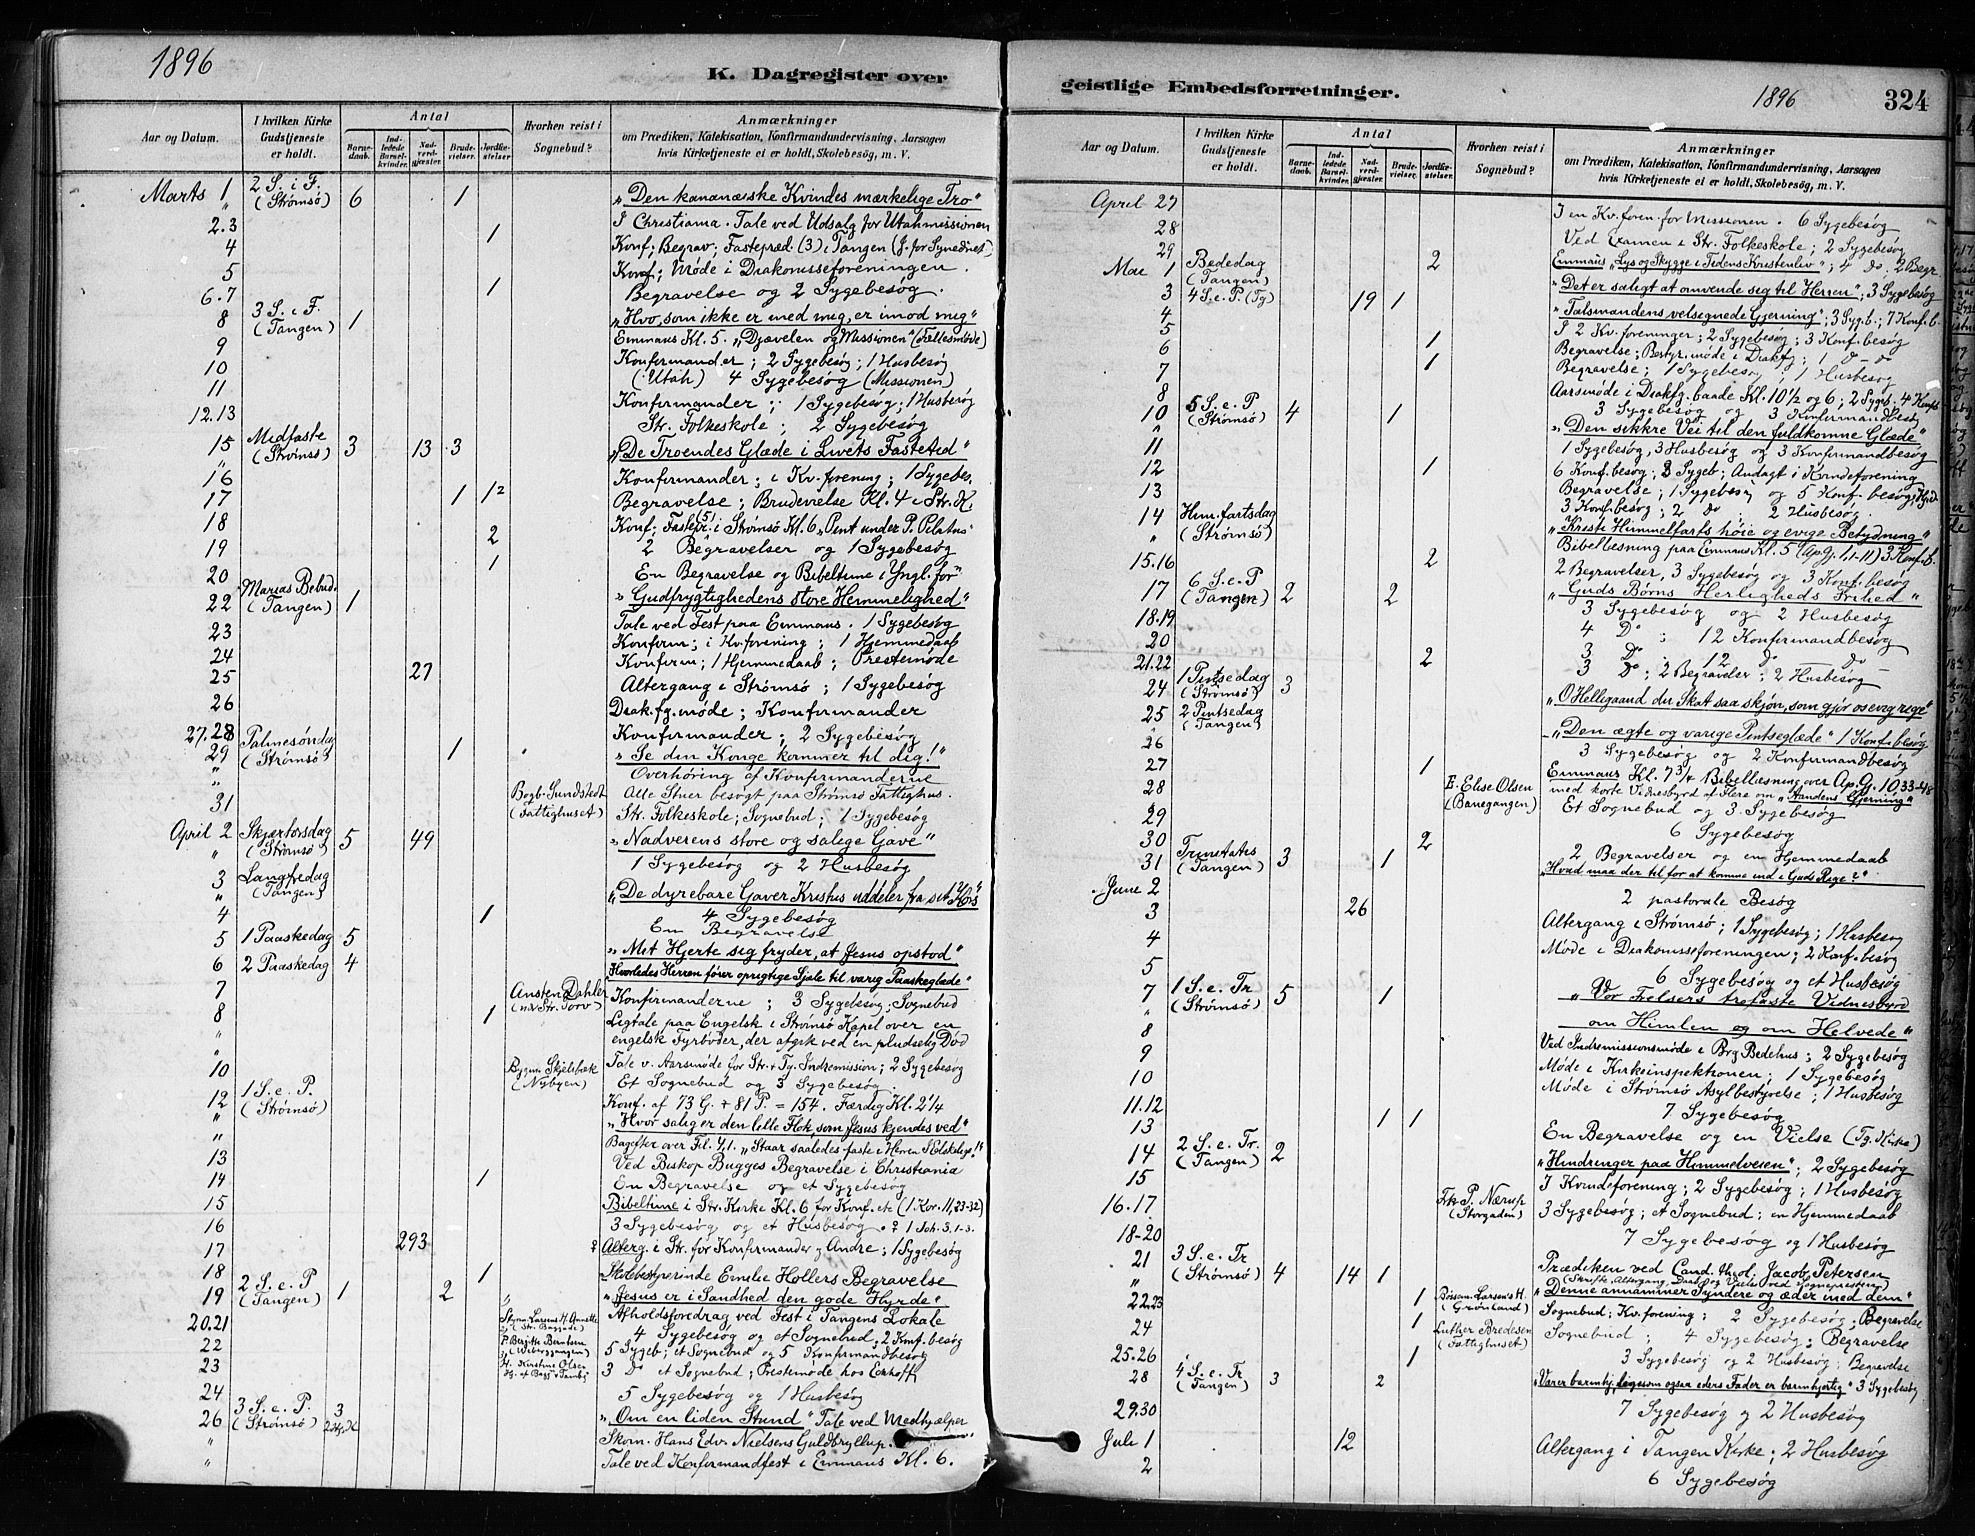 1896
K. Dagregister over
Aar og Datum. I hvilken Kirke Gudstjeneste er holdt. Antal Barnedaab. Indledede Barselkvinder. Nadverdgjester. Brudevielser. Jordfæstelser Hvorhen reist i Sognebud? Anmærkninger
om Prædiken, Katekisation, Konfirmandundervisning, Aarsagen
hvis Kirketjeneste ei er holdt, Skolebesøg, m. V.
Marts 1 2 S. i F. (Strømsø) 6 1 „Den kananæiske Kvindes mærkelige Tro“
" I Christiania. Tale ved Udsalg for Utahmissionen
2.3 1 Konf; Begrav; Fastepræd. (3) i Tangen (J. for Synedriet)
4 Konf; Møde i Diakonisseforeningen.
5 1 Begravelse og 2 Sygebesøg.
6.7
8 3 S. i F. (Tangen) 1 „Hvo, som ikke er med mig, er imod mig“
Emmaus Kl. 5. „Djævelen og Missionen“ (Fællesmøde)
9 Konfirmander; 2 Sygebesøg; 1 Husbesøg
10 (Utah) 4 Sygebesøg (Missionen)
11 Konfirmander; 1 Sygebesøg; 1 Husbesøg
12.13 Str. Folkeskole; 2 Sygebesøg
15 Midfaste (Strømsø) 3 13 3 „De Troendes Glæde i Livets Fastetid“
16 Konfirmander; i Kv. forening; 1 Sygebes.
17 1 12 Begravelse; Brudevielse Kl. 4 i Str. K.
18 Konf; Fastepr. (5) i Strømsø Kl. 6 „Pint under P. Pilatus“
19 2 2 Begravelser og 1 Sygebesøg
20 1 En Begravelse og Bibeltime i Yngl. for"
22 Marias Bebud. (Tangen) 1 „Gudfrygtighedens store Hemmelighed“
Tale ved Fest paa Emmaus. 1 Sygebesøg
23 Konfirm; i Kv. forening; 1 Hjemmedaab
24 Konfirm; 1 Hjemmedaab; Prestemøde
25 27 Altergang i Strømsø; 1 Sygebesøg
26 Diak. fg. møde; Konfirmander
27.28 Konfirmander; 2 Sygebesøg
29 Palmesøndag (Strømsø) 1 „Se din Konge kommer til dig!“
" Overhøring af Konfirmanderne
" Alle Stuer besøgt paa Strømsø Fattighus.
31 Bogb. Sundstedt (Fattighuset) Str. Folkeskole; Sognebud; 1 Sygebesøg
April 2 Skjærtorsdag (Strømsø) 5 49 „Nadverens store og salige Gave“
" 1 Sygebesøg og 2 Husbesøg
3 Langfredag (Tangen) „De dyrebare Gaver Kristus uddeler fra sit Kors“
" 4 Sygebesøg
4 1 En Begravelse
5 1 Paaskedag 5 „Mit Hjerte sig fryder, at Jesus opstod“
6 2 Paaskedag 4 Hvorledes Herren fører oprigtige Sjæle til varig Paaskeglæde“
7 Ansten Dahler (ved Str. Torv) Konfirmanderne; 3 Sygebesøg; Sognebud
8 1 Ligtale paa Engelsk i Strømsø Kapel over en
engelsk Fyrbøder, der afgik ved en pludselig Død
Tale v. Aarsmøde for Str. + Tg. Indremission; 2 Sygebesøg
10 Bygm. Skjelbæk (Nybyen) Et Sognebud og 3 Sygebesøg.
12 1 S. e. P. (Strømsø) Konf. af 73 G. + 81 P. = 154. Færdig Kl. 2 1/4
" „Hvor salig er den lille Flok, som Jesus kjendes ved“
" Bagefter over Fil. 4,1. „Staar saaledes faste i Herren, I Elskelige!“
13 Ved Biskop Bugges Begravelse i Christiania
14 1 En Begravelse og et Sygebesøg
15 Bibeltime i Str. Kirke Kl. 6 for Konf. etc (1. Kor. 11, 23-32)
16 3 Sygebesøg og et Husbesøg. 1 Joh. 3. 1-3.
17 293 Alterg. i Str. for Konfirmander og Andre; 1 Sygebesøg
18 1 Skolebestyrerinde Emilie Hollers Begravelse
19 2 S. e. P (Tangen) 1 2 „Jesus er i Sandhed den gode Hyrde“
Afholdsforedrag ved Fest i Tangens Lokale
20.21 4 Sygebesøg og et Sognebud; 2 Konf. besøg
22 P. Bergitte Berntsen 5 Sygeb; et Sognebud og 5 Konfirmandbesøg
23 H. Kirstine Olsen 3 Do et Sognebud; Prestemøde hos Eckhoff
24 5 Sygebesøg og 1 Husbesøg
26 3 S. e. P. (Strømsø) 3 „Om en liden Stund“ Tale ved Medhjælper
" Skom. Hans Edv. Nielsens Guldbryllup.
" Tale ved Konfirmandfest i Emmaus Kl. 6.
geistlige Embedsforretninger.
1896
324
Aar og Datum. I hvilken Kirke Gudstjeneste er holdt. Antal Barnedaab. Indledede Barselkvinder. Nadverdgjester. Brudevielser. Jordfæstelser. Hvorhen reist i Sognebud? Anmærkninger
om Prædiken, Katekisation, Konfirmandundervisning, Aarsagen
hvis Kirketjeneste ei er holdt, Skolebesøg, m. V.
April 27 I en Kv. foren. for Missionen. 6 Sygebesøg
28 Ved Examen i Str. Folkeskole; 2 Sygebesøg
29 2 Emmaus „Lys og Skygge i Tidens Kristenliv“; 4 do. 2 Begr.
Mai 1 Bededag (Tangen) „Det er saligt at omvende sig til Herren“; 3 Sygebesøg
3 4 S. e. P. (Tg) 19 1 „Talsmandens velsignede Gjerning“; 3 Syg. b.; 7 Konf. b.
4 I 2 Kv. foreninger; 2 Sygebesøg; 3 Konf. besøg
5 1 Begravelse; Bestyr. møde i Diakfg; 1 d - d
6 1 Begravelse; 1 Sygebesøg; 1 Husbesøg
7 Aarsmøde i Diakfg. baade Kl. 10 1/2 og 6; 2 Sygeb. 4 Konf.
8 3 Sygebesøg og 3 Konfirmandbesøg
10 5 S. e. P (Strømsø) 4 1 „Den sikkre Vei til den fuldkomne Glæde“
" 1 Sygebesøg, 3 Husbesøg og 3 Konfirmandbesøg
11 6 Konf. besøg; 2 Sygeb; Andagt i Kvindeforening
12 1 Begravelse; 1 Sygebesøg og 5 Konf. besøg;
13 3 Konf. besøg; 2 do; 2 Husbesøg
14 Him. fartsdag (Strømsø) „Kristi Himmelfarts høie og evige Betydning“
" Bibellæsning paa Emmaus Kl. 5 (Ap. Gj. 1. 1-11) 3 Konf. b.
15.16 2 2 Begravelser, 3 Sygebesøg og 3 Konf. besøg
17 6 S. e. P (Tangen) 2 2 „Guds Børns Herligheds Frihed“
3 Sygebesøg og 2 Husbesøg
18.19 4 Do; 12 Konfirmandbesøg
20 3 Do; 12 do do
21.22 2 3 Do; 2 Begravelser; 2 Husbesøg
24 1 Pintsedag (Strømsø) 3 „O Helligaand du Skat saa skjøn, som gjør os evig rige“
25 2 Pintsedag (Tangen) „Den ægte og varige Pintseglæde“ 1 Konf. besøg
26 3 Sygebesøg og 2 Konfirmandbesøg
27 1 Emmaus Kl. 7 3/4 Bibellæsning over Ap. G. 10, 33-48
med korte Vidnesbyrd af Flere om „Aandens Gjerning“
28 E. Elise Olsen (Banegangen) Et Sognebud og 3 Sygebesøg
29 6 Sygebesøg
30 2 2 Begravelser og en Hjemmedaab
31 Trinitatis (Tangen) 3 1 „Hvad maa der til for at komme ind i Guds Rige?“
Juni 2 2 pastorale Besøg
3 26 Altergang i Strømsø; 1 Sygebesøg; 1 Husbesøg
4 Møde i Diakonisseforeningen; 2 Konf. besøg
5 6 Sygebesøg og et Husbesøg
7 1 S. e. Tr (Strømsø) 5 1 „Vor Frelsers trefaste Vidnesbyrd
" om Himlen og om Helvede“
8 Ved Indremissionsmøde i Brg Bedehus; 2 Sygebesøg
9 Møde i Kirkeinspektionen; 1 Sygebesøg
10 Møde i Strømsø Asylbestyrelse; 1 Husbesøg
11.12 7 Sygebesøg
13 1 1 En Begravelse og en Vielse (Tg. Kirke)
14 2 S. e. Tr. (Tangen) 2 „Hindringer paa Himmelveien“; 2 Sygebesøg
15 I Kvindeforening; 2 Sygebesøg; 1 Husbesøg
16.17 Frk P. Nærup (Storgaden) 3 Sygebesøg; et Sognebud; en Hjemmedaab
18-20 7 Sygebesøg og 1 Husbesøg
21 3 S. e. Tr (Strømsø) 4 14 1 Prædiken ved Cand. theol. Jacob Petersen
(Skrifte, Altergang, Daab og Vielse ved Sognepresten)
" „Denne annammer Syndere og æder med dem“
22.23 1 Larsen's H. (Grønland) Sognebud; Kv. forening; 2 Sygebesøg; Begravelse
24 1 Luther Bredesen (Fattighuset) Sognebud; 4 Sygebesøg; Begravelse
25.26 1 3 Sygebesøg og 2 Husbesøg; Begravelse
28 4 S. e. Tr (Tangen) 3 2 „Værer barmhj. ligesom ogsaa eders Fader er barmhjertig“ 3 Sygebesøg
29.30 7 Sygebesøg og 2 Husbesøg
Juli 1 12 Altergang i Tangen Kirke; 2 Husbesøg
2 6 Sygebesøg